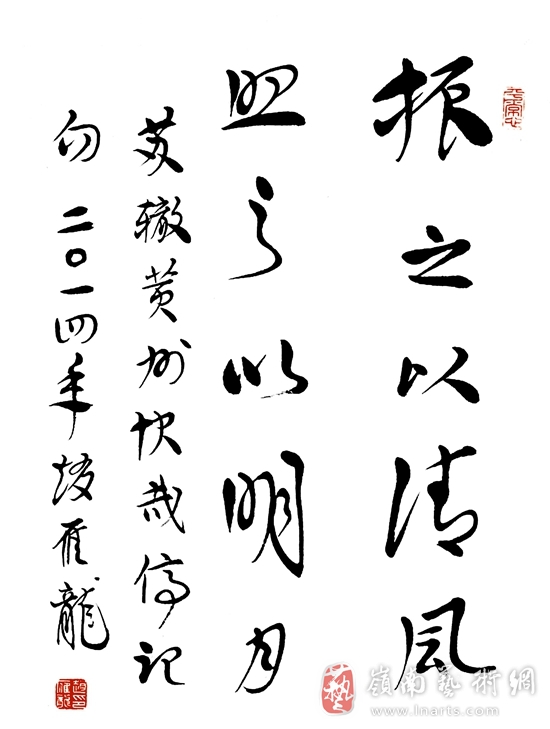 振之以清风
照之以明月
苏辙黄州快哉停记
句 二〇一四年 赵雁龍
平常心
藝 嶺南藝術網
www.lnarts.com